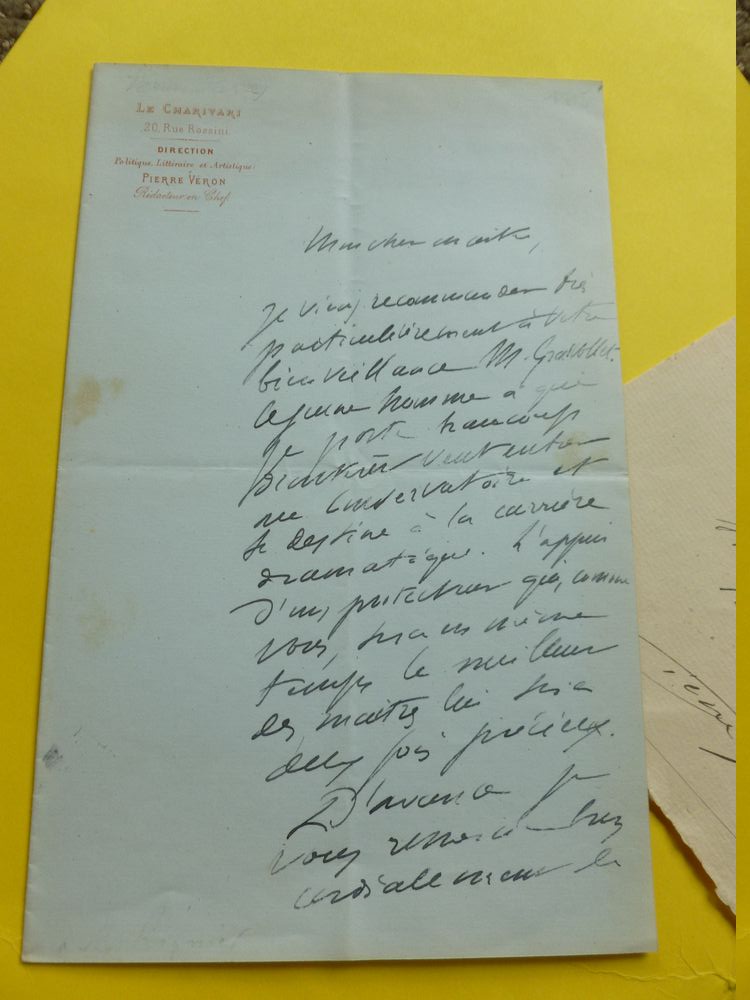 LE CHARIVARI
20, Rue Rossini
DIRECTION
Politique, Littéraire et Artistique
PIERRE VÉRON
Rédacteur en Chef
Mon cher maître,
Je viens recommander très
particulièrement à votre
bienveillance M.
Ce jeune homme à qui
je porte beaucoup
d'intérêt veut entrer
au Conservatoire et
se destine à la carrière
dramatique. L'appui
d'un protecteur qui, comme
vous, sera en même
temps le meilleur
des maîtres lui sera
deux fois précieux.
D'avance je
vous remercie bien
cordialement